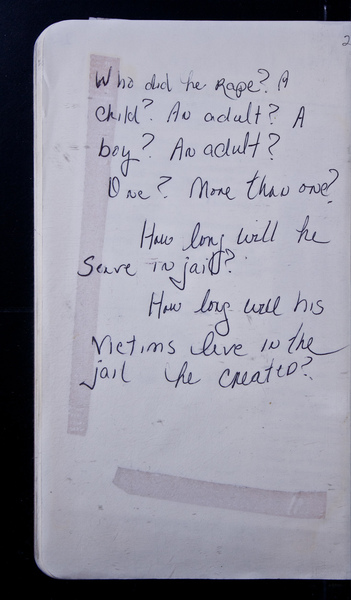 2
Who did he Rape? A
child? An adult? A
boy? An adult?
One? More than one?
How long will he
Serve in jail?
How long will his
Victims live in the
jail he created?